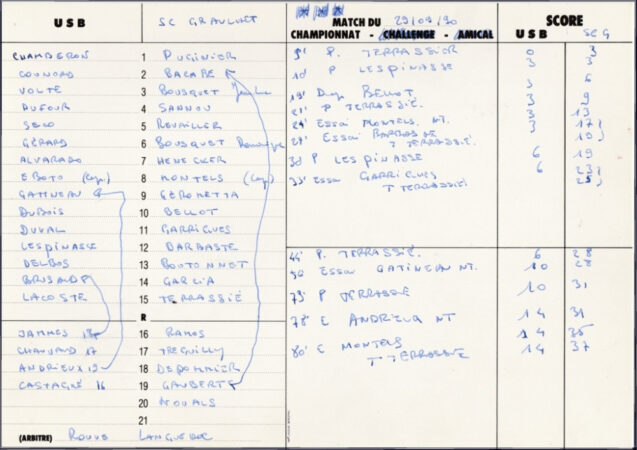 USB SC GRAULHET MATCH DU 29/04/90 SCORE
CHAMPIONNAT - CHALLENGE - AMICAL USB SC G
CHAMBERON 1 PUGINIER
COUNORD 2 BACABE
VOLTE 3 BOUSQUET
DUFOUR 4 SANNOU
SECO 5 REVAILLER
GÉRARD 6 BOUSQUET
ALVARADO 7 HENECKER
EBOTO (cap) 8 MONTELS (Cap)
GATINEAU 9 GÉROMETTA
DUBOIS 10 BELLOT
DUVAL 11 GARRIGUES
LESPINASSE 12 BARBASTE
DELBOS 13 BOUTONNET
BRISAUD 14 GARCIA
LACOSTE 15 TERRASSIÉ
R
JAMMES 16 RAMOS
CHAUVAUD 17 17 TREGUILLY
ANDRIEUX 19 18 DEPOMMIER
CASTAGNÉ 16 19 GAUBERT
20 NOUALS
21
(ARBITRE) ROUVE LANGUEDOC
9' P. TERRASSIER 0 3
10' P LESPINASSE 3 3
3 6
19' Drop BELLOT 3 9
21' P TERRASSIÉ 3 13
24' Essai MONTELS NT. 3 17
27' Essai BARBASTE 19
T TERRASSIÉ
30' P LESPINASSE 6 19
33' Essai GARRIGUES 6 23
T TERRASSIÉ 25
44' P. TERRASSIÉ. 6 28
50 Essai GATINEAU NT. 10 28
73' P TERRASSIE 10 31
78' E ANDRIEUX NT 14 31
80' E MONTELS 14 35
T TERRASSIE 14 37